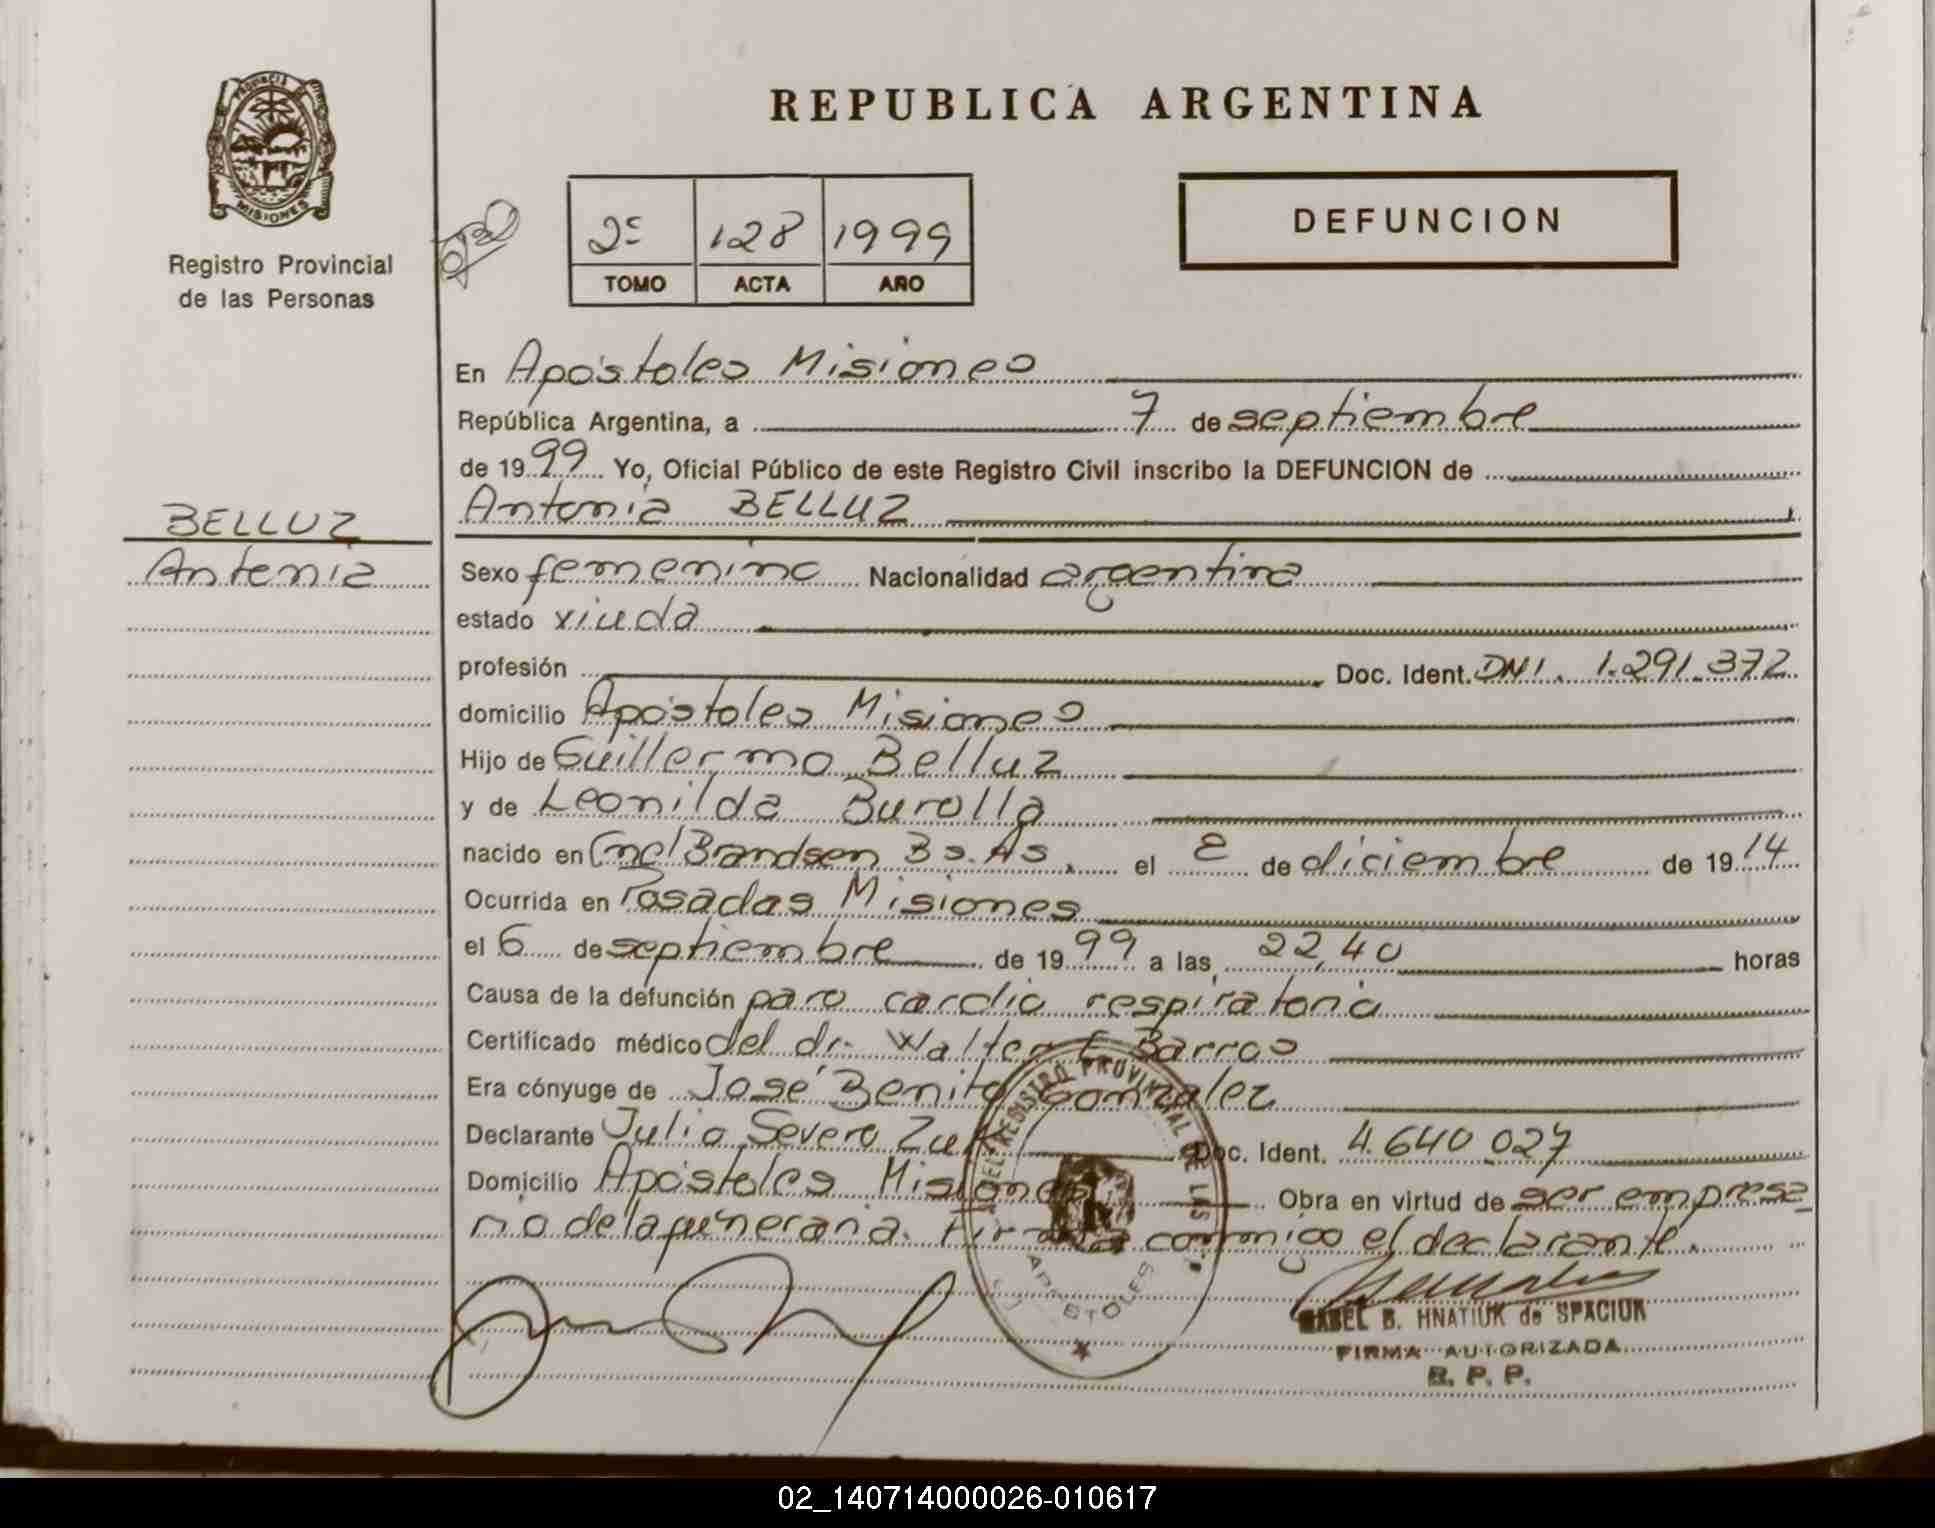 PROVINCIA
MISIONES
Registro Provincial
de las Personas
REPUBLICA ARGENTINA
2º 128 1999
TOMO ACTA AÑO
DEFUNCION
En Apóstoles Misiones
República Argentina, a 7 de septiembre
de 1999 Yo, Oficial Público de este Registro Civil inscribo la DEFUNCION de
Antonia BELLUZ
BELLUZ
Antonia
Sexo femenino Nacionalidad argentina
estado viuda
profesión Doc. Ident. DNI. 1.291.372
domicilio Apóstoles Misiones
Hijo de Guillermo Belluz
y de Leonilda Burolla
nacido en Cnel Brandsen Bs. As. el 2 de diciembre de 1914
Ocurrida en Posadas Misiones
el 6 de septiembre de 1999 a las 22,40 horas
Causa de la defunción paro cardio respiratorio
Certificado médico del dr. Walter E Barros
Era cónyuge de José Benito Gonzalez
Declarante Julio Severo Doc. Ident. 4.640.027
Domicilio Apóstoles Misiones Obra en virtud de ser empresa
rio de la funeraria. Firma conmigo el declarante.
REGISTRO PROVINCIAL DE LAS
APOSTOLES
B. HNATIUK de SPACIUK
FIRMA AUTORIZADA
R. P. P.
02_140714000026-010617